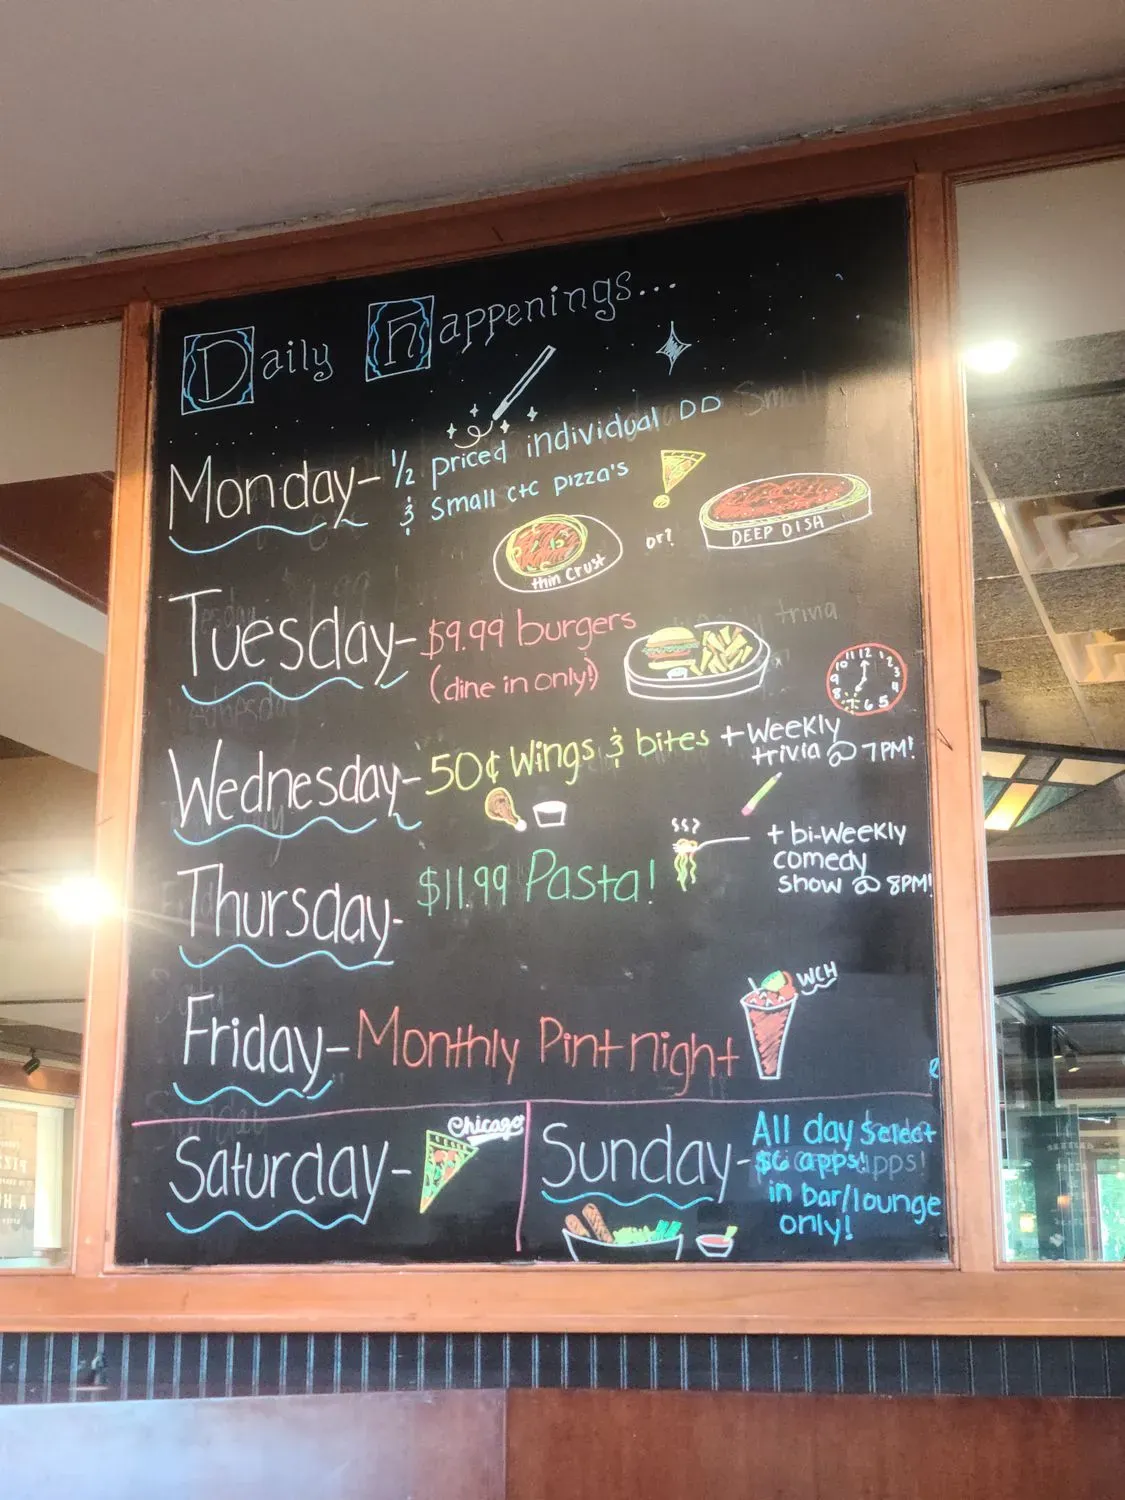 Daily Happenings...
Monday- 1/2 priced individual DD
& Small CTC pizza's
thin crust
or?
DEEP DISH
Tuesday- $9.99 burgers
(dine in only!)
11 12 1
10 2
9 3
8 4
7 6 5
Wednesday- 50¢ Wings & bites + Weekly
trivia @ 7PM!
Thursday- $11.99 Pasta!
+ bi-weekly
comedy
Show @ 8PM!
Friday- Monthly Pint night
WCH
Saturday-
Chicago
Sunday- All day Select
$6 apps!
in bar/lounge
only!